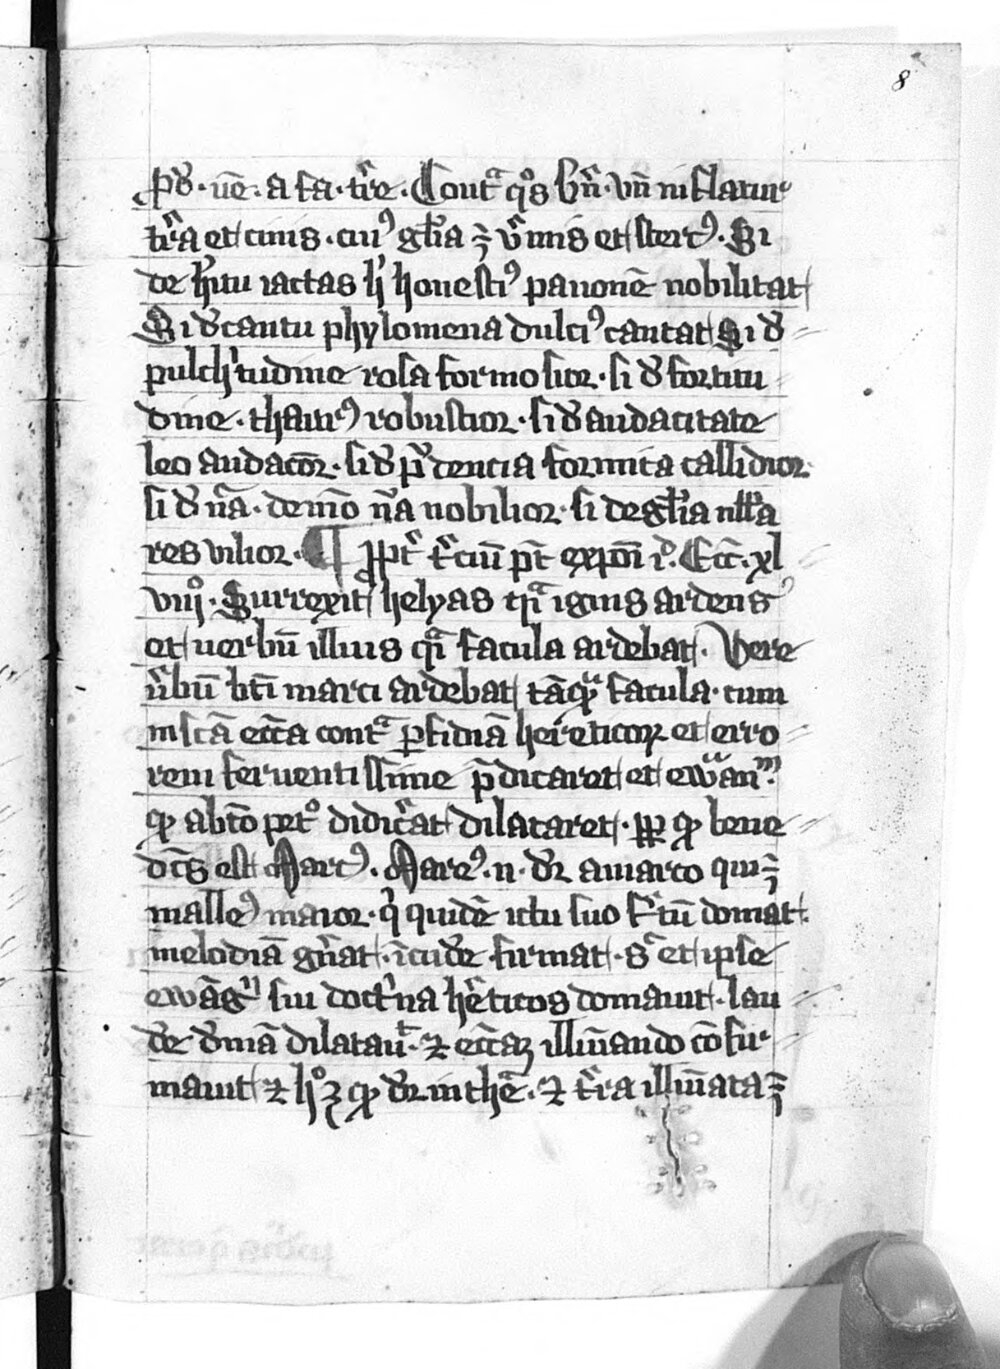 8
pꝰ · uē · a fa · t̄re · Contͣ qͦs bn̄ · vn̄ inflatur
tr̄a et cinis · cuiꝰ gl̄ia ē v̄mis et stercꝰ · Si
de hītu iactas te honestiꝰ pauonē nobilitat
Si de cantu phylomena dulciꝰ cantat Si de
pulchͥtudine rosa formosior · si de fortitu
dine · thaurꝰ robustior · si de audacitate
leo audacior · si de prudencia formica callidior
si de nā · demō nā nobilior · si de gl̄ia nll̄a
res vilior · ¶ tͥciū exponi Ecc̄ · xl
viij · Surrexit helyas qͣi ignis ardens
et uerbū illius qͣi facula ardebat · Vere
v̄bū bt̄i marci ardebat tāqͣ facula · cum
in scā ecc̄a contͣ ꝑfidiā hereticoꝝ et erro
rem feruentissime p̄dicaret et ewāᵐ
ꝙ ab petͦ didic̄at dilataret · ꝓpͭ ꝙ bene
dc̄s est Marcꝰ · Marcꝰ · n · dr̄ a marco qui ē
malleꝰ maior · qͥ quidē ictu suo fr̄ū domat
melodiā gn̄at · īcudē firmat · Sͥ et ipse
ewāgͥi sui doctͥna hēticos domauit · lau
de diuinā dilatauͭ · ⁊ ecc̄aꝫ illūnando cōfir
mauit ⁊ hͦ ē ꝙ dr̄ in the · ⁊ t̄ra illūnata ē